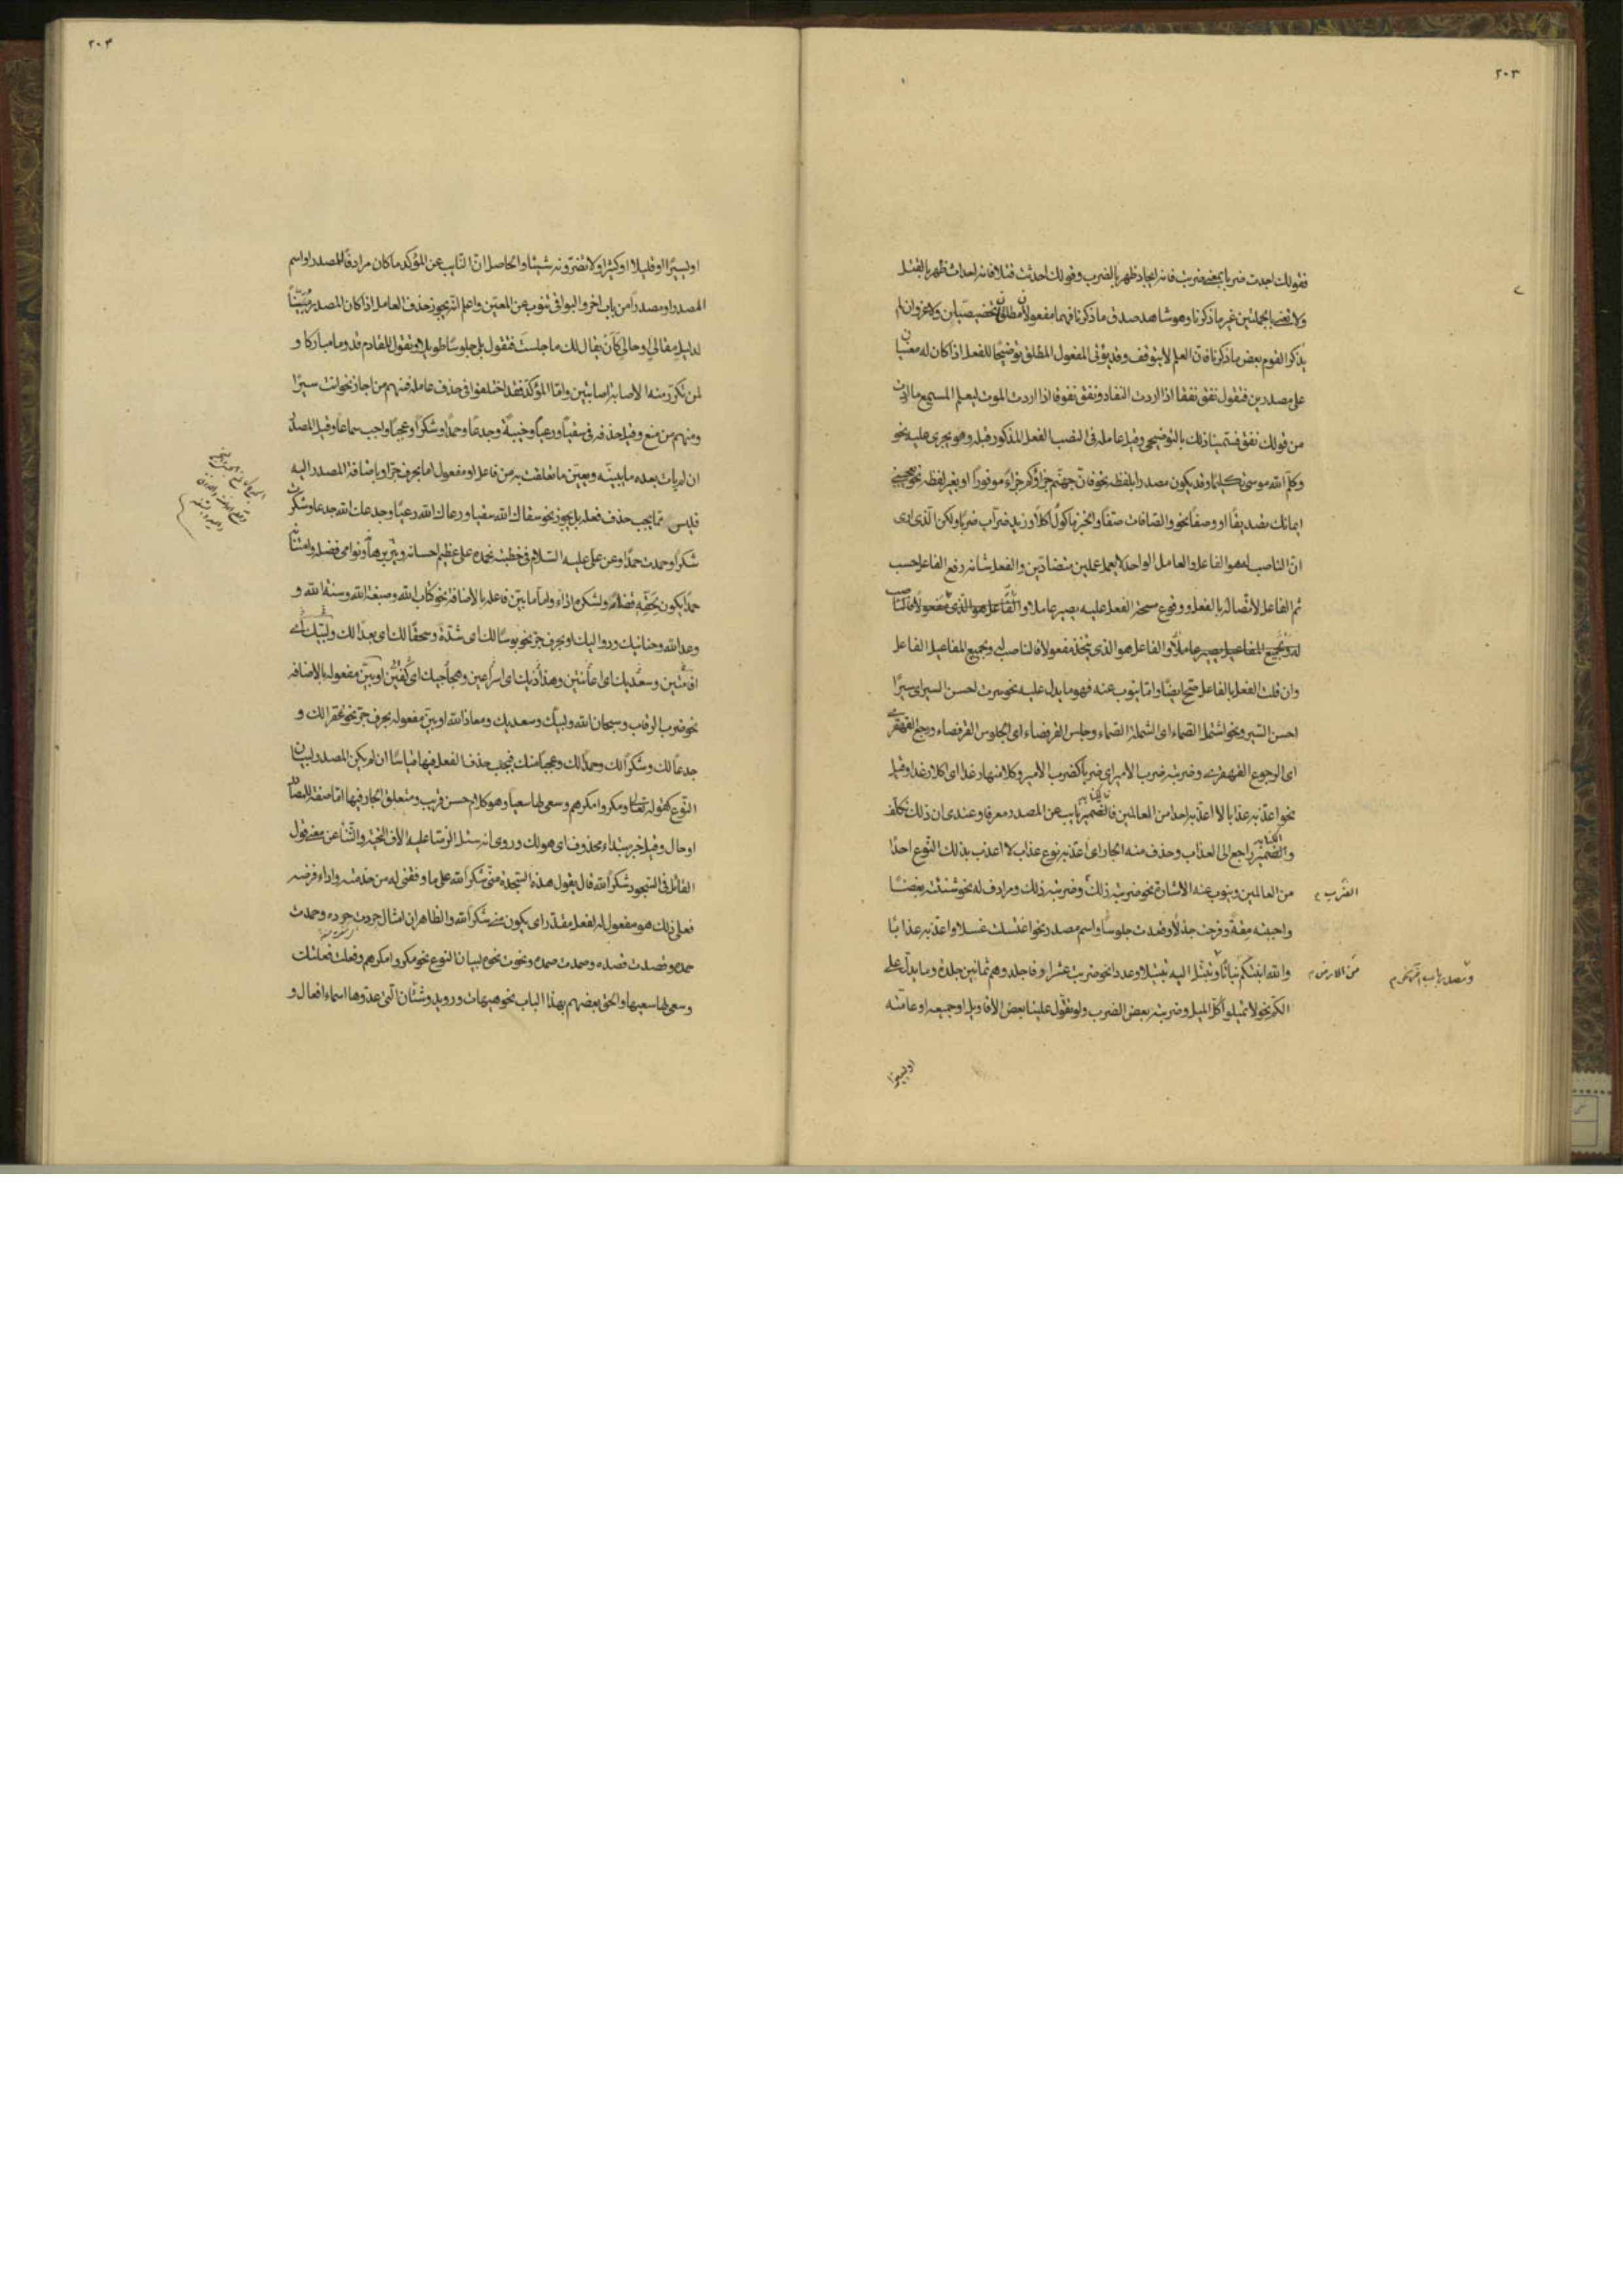 ٢٠٣
فقولك اوجدت ضربا بمعنى ضربت فانه ايجاد ظهر بالضرب وقولك احدثت قتلا فانه احداث ظهر بالقتل
ولا نعنى بالجملتين غير ما ذكرنا وهو شاهد صدق ما ذكرنا فهما مفعولان مطلقان تخصيصيان ولا غرو ان لم
يذكر القوم بعض ما ذكرناه فان العلم لا يتوقف وقد يؤتى المفعول المطلق توضيحا للفعل اذا كان له معنيان
على مصدرين فتقول نفق نفقا اذا اردت النفاد ونفق نفوقا اذا اردت الموت ليعلم المستمع ما اردت
من قولك نفق فتسميتنا ذلك بالتوضيحى وقيل عامله فى النصب الفعل المذكور قبله وهو يجرى عليه نحو
وكلم الله موسى تكليما وقد يكون مصدرا بلفظه نحو فان جهنم جزاؤكم جزاء موفورا او بغير لفظه نحو يعجبنى
ايمانك تصديقا او وصفا نحو والصافات صفا والخبز مأكول اكلا وزيد ضراب ضربا ولكن الذى ارى
ان الناصب له هو الفاعل والعامل الواحد لا يعمل عملين متضادين والفعل شانه رفع الفاعل حسب
ثم الفاعل لاتصاله بالفعل ووقوع سحنة الفعل عليه يصير عاملا والفاعل هو الذى مفعولا فالناصب
له ولجميع المفاعيل يصير عاملا والفاعل هو الذى يتخذ مفعولا فالناصب له ولجميع المفاعيل الفاعل
وان قلت الفعل بالفاعل صح ايضا واما ينوب عنه فهو ما يدل عليه نحو سرت احسن السير اى سيرا
احسن السير ونحو اشتمل الصماء اى الشملة الصماء وجلس القرفصاء اى الجلوس القرفصاء ورجع القهقرى
اى الرجوع القهقرى وضربته ضرب الامير اى ضربا كضرب الامير وكلا منها رغدا اى اكلا رغدا وقيل
نحو اعذبه عذابا لا اعذبه احدا من العالمين فالضمير نايب عن المصدر معرفا وعندى ان ذلك تكلف
والضمير راجع الى العذاب وحذف منه الجار اى اعذبه نوع عذاب لا اعذب بذلك النوع احدا
من العالمين وينوب عنه الاشارة نحو ضربته ذلك وضربته ذلك ومرادف له نحو شنئته بغضا
واحببته مقة وفرحت جذلا وقعدت جلوسا واسم مصدر نحو اغتسلت غسلا واعذبه عذابا
والله انبتكم نباتا وتبتل اليه تبتيلا وعددا نحو ضربت عشرا وفاجلدوهم ثمانين جلدة وما يدل على
الكم نحو لا تميلوا كل الميل وضربته بعض الضرب ولو تقول علينا بعض الاقاويل او جميعه او عامته
الضرب
من الارض
اويسيرا
٢٠۴
اويسيرا او قليلا او كثيرا ولا تضرونه شيئا والحاصل ان النايب عن المؤكد ما كان مرادفا للمصدر او اسم
المصدر او مصدرا من باب اخر والبواقى تنوب عن المعين واعلم انه يجوز حذف العامل اذا كان المصدر مبينا
لدليل مقالى وحالى كأن يقال لك ما جلست فتقول بلى جلوسا طويلا وتقول للقادم قدوما مباركا و
لمن تكرر منه الاصابة اصابتين واما المؤكد فقد اختلفوا فى حذف عامله فمنهم من اجاز نحو انت سيرا
ومنهم من منع وقيل حذفه فى سقيا ورعيا وخيبة وجدعا وحمدا وشكرا وعجبا واجب سماعا وقيل المصدر
ان لم يات بعده ما يبينه ويعين ما تعلقت به من فاعل او مفعول اما بحرف جر او باضافة المصدر اليه
فليس مما يجب حذف فعله بل يجوز نحو سقاك الله سقيا ورعاك الله رعيا وجدعك الله جدعا وشكرت
شكرا وحمدت حمدا وعن على عليه السلام فى خطبته نحمده على عظيم احسانه ونير برهانه ونوامى فضله وامتنانه
حمدا يكون لحقه قضاء ولشكره اداء واما ما بين فاعله بالاضافة نحو كتاب الله وصبغة الله وسنة الله و
وعد الله وحنانيك ودواليك او بحرف جر نحو بوسا لك اى شدة وسحقا لك اى بعدا لك ولبيك اى
اقامتين وسعديك اى اعانتين وهذاذيك اى اسراعين وهجاجيك اى كفين او بين مفعوله بالاضافة
نحو ضرب الرقاب وسبحان الله ولبيك وسعديك ومعاذ الله او بين مفعوله بحرف جر نحو عقرا لك و
جدعا لك وشكرا لك وحمدا لك وعجبا منك فيجب حذف الفعل فيها قياسا ان لم يكن المصدر لبيان
النوع كقوله تعالى ومكروا مكرهم وسعى لها سعيها وهو كلام حسن قريب ومتعلق الجار فيها اما صفة للمصادر
او حال وقيل خبر مبتداء محذوف اى هو لك وروى انه سئل الرضا عليه الاف التحية والثناء عن معنى قول
القائل فى السجود شكرا لله قال يقول هذه السجدة منى شكرا لله على ما وفقنى له من خدمته واداء فرضه
فعلى ذلك هو مفعول له لفعل مقدر اى يكون منى شكرا لله والظاهر ان امثال جردت جرده وحمدت
حمده وقصدت قصده وصمدت صمده ونحوت نحوه لبيان النوع نحو مكروا مكرهم وفعلت فعلتك
وسعى لها سعيها والحق بعضهم بهذا الباب نحو هيهات ورويد وشتان التى عدوها اسماء افعال و